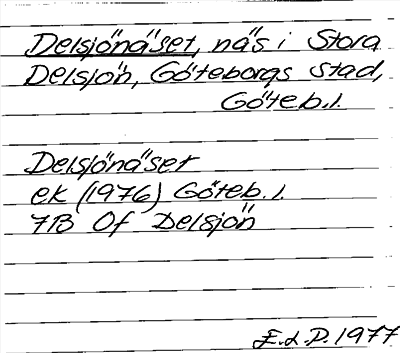 Delsjönäset, näs i Stora
Delsjön, Göteborgs stad,
Göteb.l.
Delsjönäset
ek (1976) Göteb.l.
7B 0f Delsjön
E.L.P. 1977